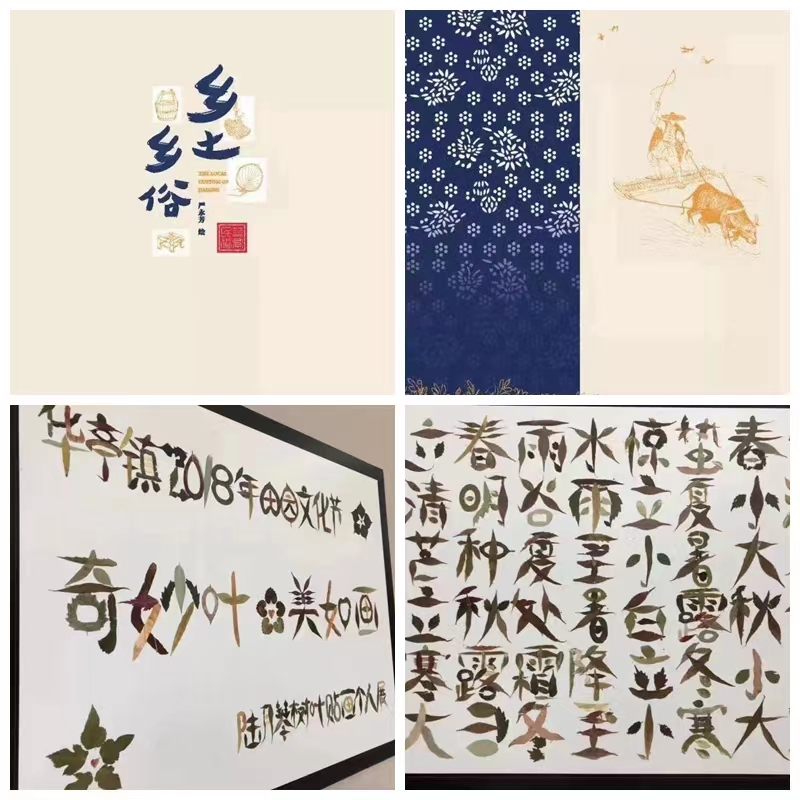 乡土
乡俗
THE LOCAL
CUSTOMS OF
JIADING
严永芳 绘
华亭镇2018年田园文化节
奇妙叶 美如画
陆乃琴树叶贴画个人展
立春雨水惊蛰春
清明谷雨立夏小
芒种夏至小暑大
立秋处暑白露秋
寒露霜降立冬小
大 冬至小寒大